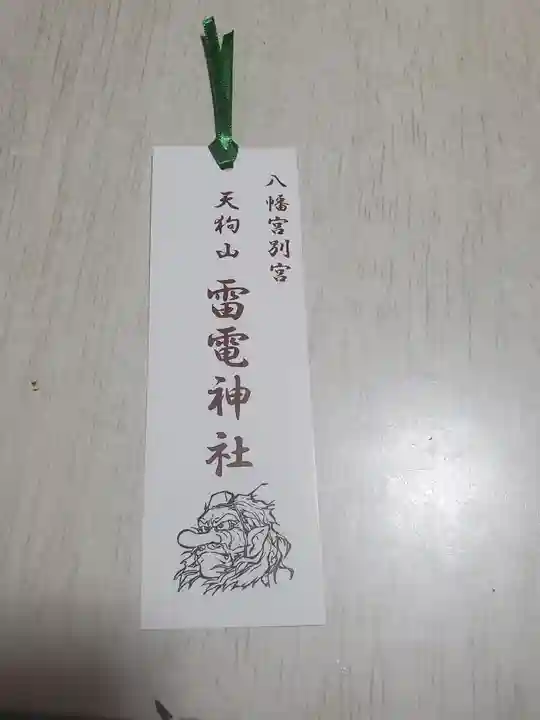 八幡宮別宮
天狗山 雷電神社